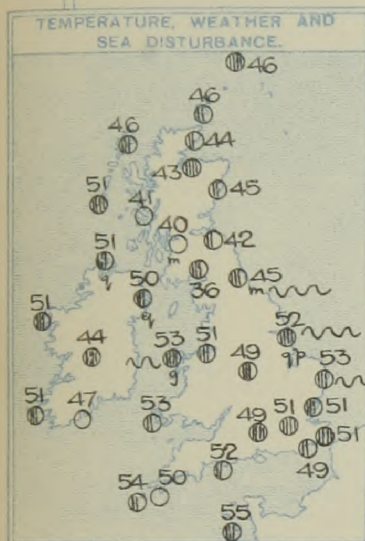 TEMPERATURE, WEATHER AND
SEA DISTURBANCE.
46
46
46
44
43
51
45
41
40
m
42
51
q
36
45
m
50
eq
51
52
qp
44
53
g
51
49
53
51
47
53
49
51
51
51
49
52
54
50
55